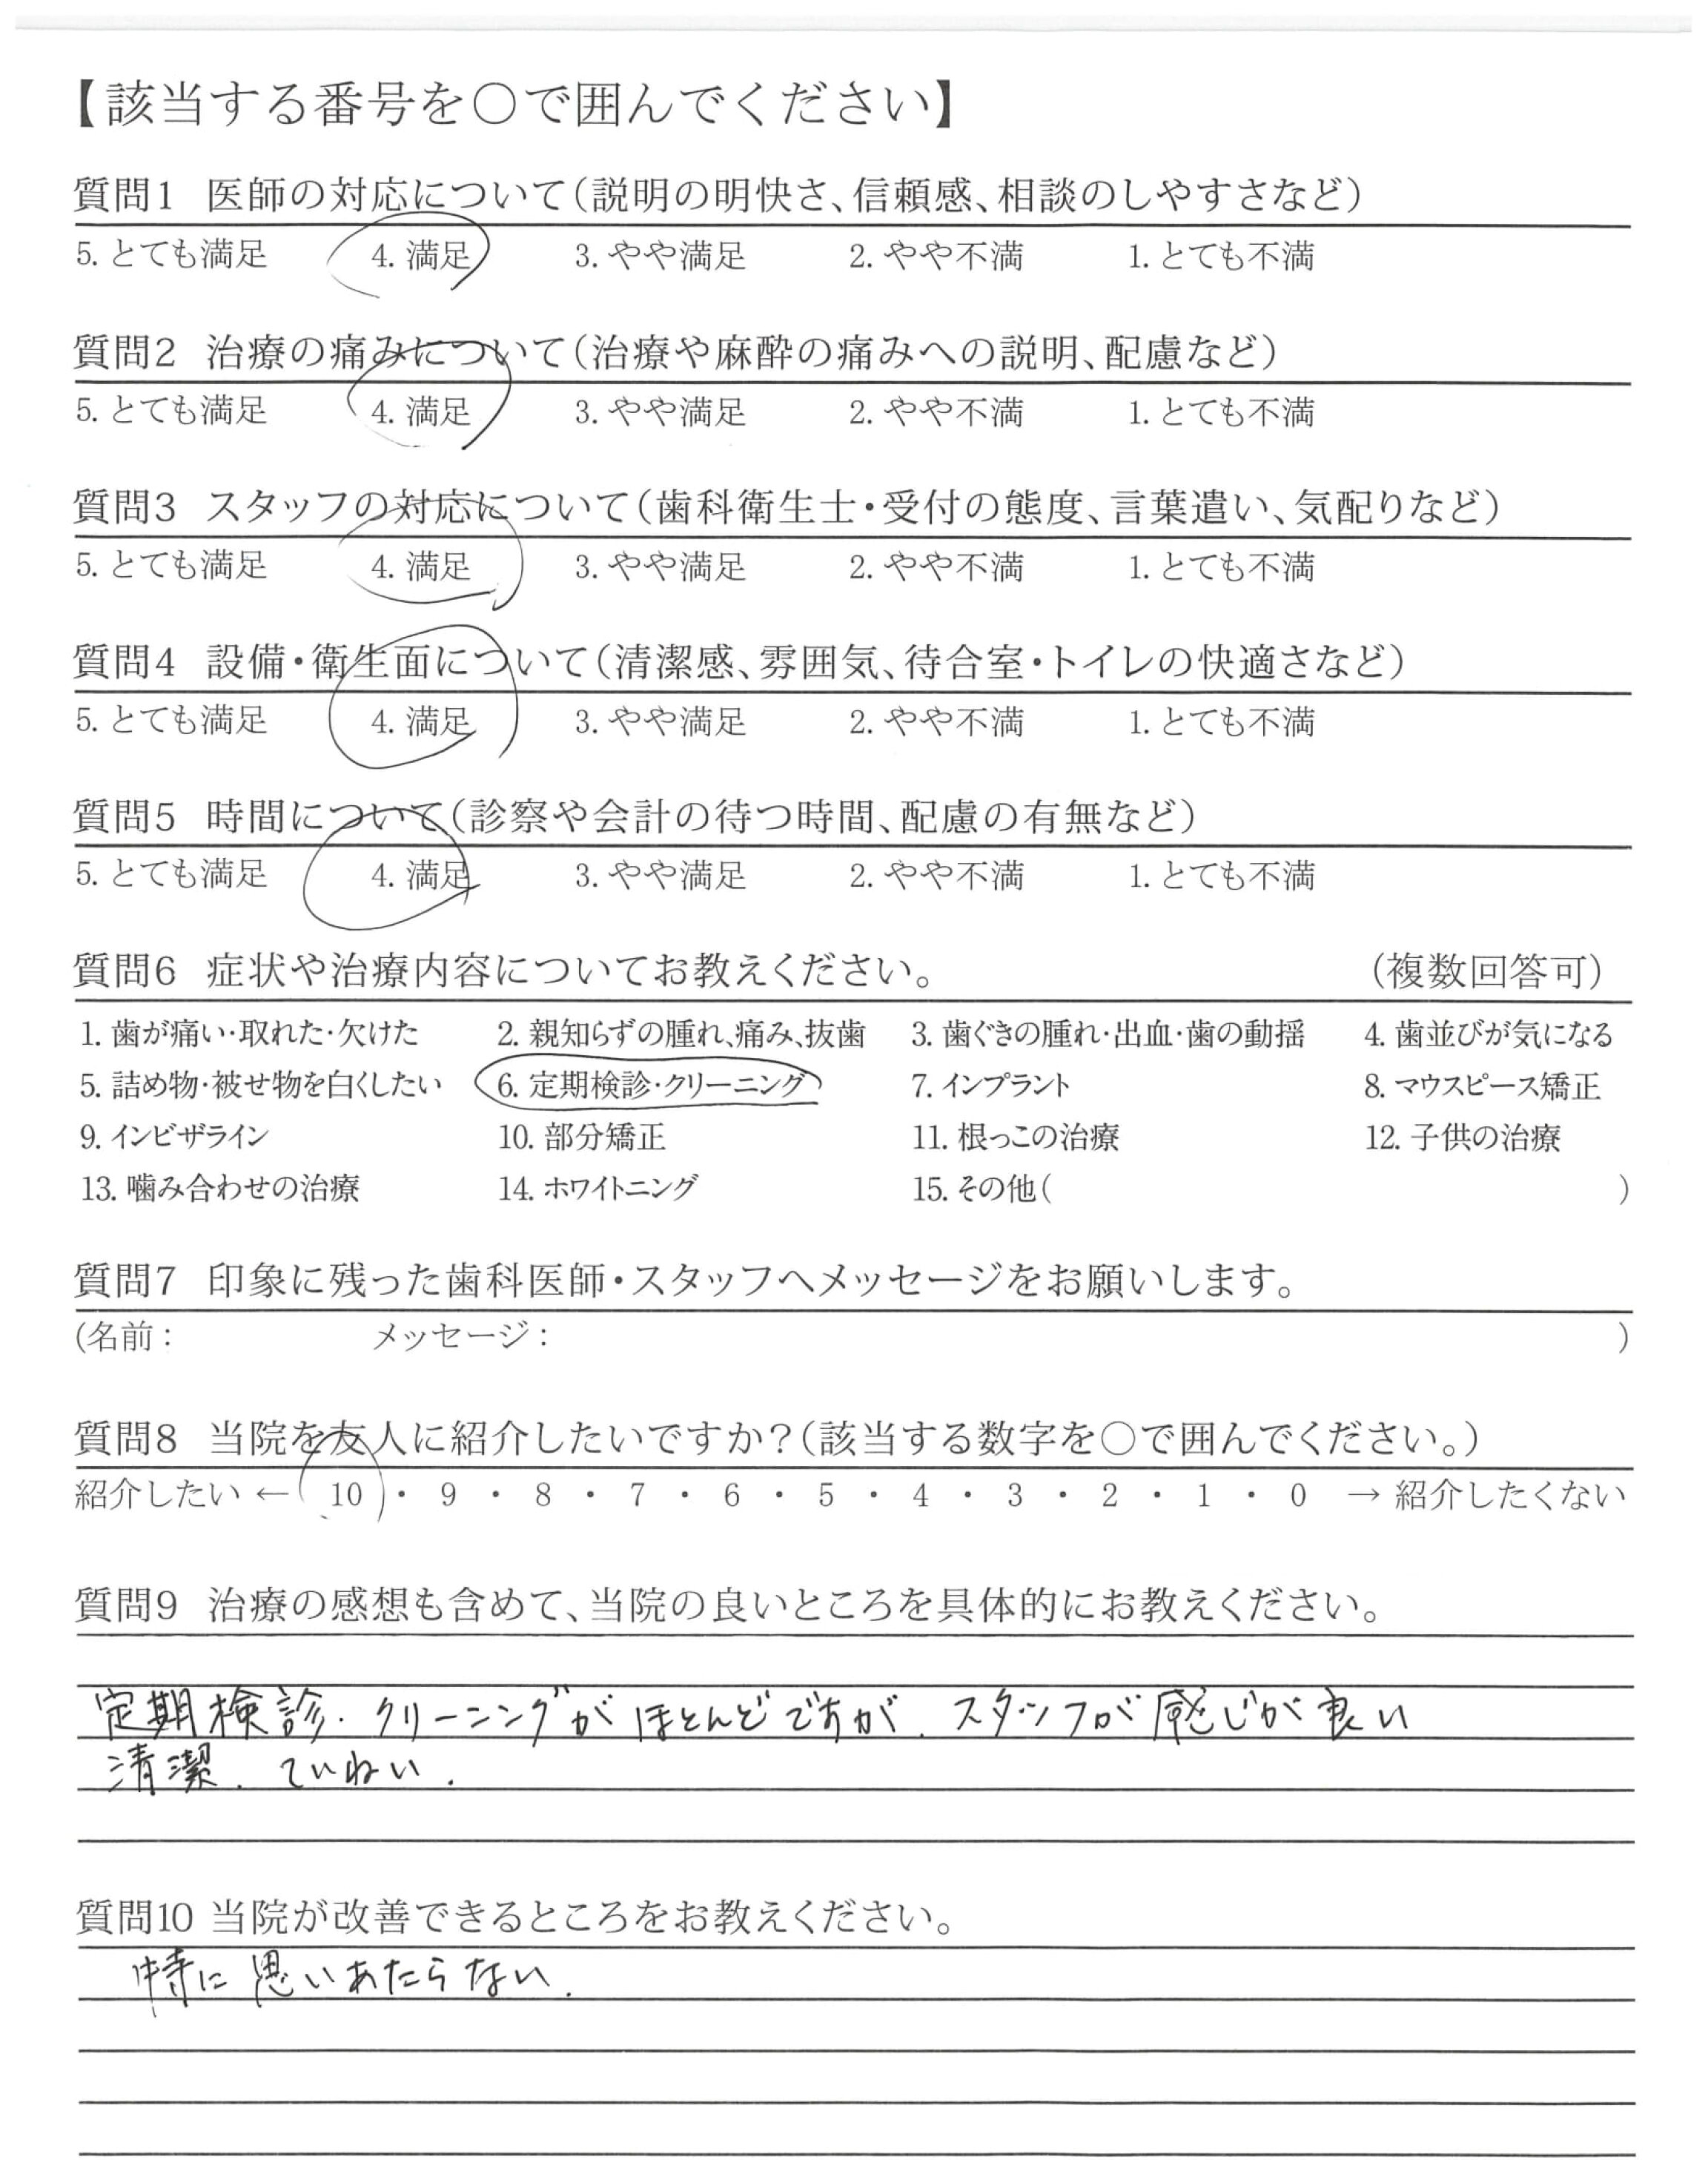 【該当する番号を○で囲んでください】
質問1 医師の対応について(説明の明快さ、信頼感、相談のしやすさなど)
5. とても満足 4. 満足 3. やや満足 2. やや不満 1. とても不満
質問2 治療の痛みについて(治療や麻酔の痛みへの説明、配慮など)
5. とても満足 4. 満足 3. やや満足 2. やや不満 1. とても不満
質問3 スタッフの対応について(歯科衛生士・受付の態度、言葉遣い、気配りなど)
5. とても満足 4. 満足 3. やや満足 2. やや不満 1. とても不満
質問4 設備・衛生面について(清潔感、雰囲気、待合室・トイレの快適さなど)
5. とても満足 4. 満足 3. やや満足 2. やや不満 1. とても不満
質問5 時間について(診察や会計の待つ時間、配慮の有無など)
5. とても満足 4. 満足 3. やや満足 2. やや不満 1. とても不満
質問6 症状や治療内容についてお教えください。 (複数回答可)
1. 歯が痛い・取れた・欠けた 2. 親知らずの腫れ、痛み、抜歯 3. 歯ぐきの腫れ・出血・歯の動揺 4. 歯並びが気になる
5. 詰め物・被せ物を白くしたい 6. 定期検診・クリーニング 7. インプラント 8. マウスピース矯正
9. インビザライン 10. 部分矯正 11. 根っこの治療 12. 子供の治療
13. 噛み合わせの治療 14. ホワイトニング 15. その他( )
質問7 印象に残った歯科医師・スタッフへメッセージをお願いします。
(名前: メッセージ: )
質問8 当院を友人に紹介したいですか?(該当する数字を○で囲んでください。)
紹介したい ← 10 ・ 9 ・ 8 ・ 7 ・ 6 ・ 5 ・ 4 ・ 3 ・ 2 ・ 1 ・ 0 → 紹介したくない
質問9 治療の感想も含めて、当院の良いところを具体的にお教えください。
定期検診.クリーニングがほとんどですが.スタッフが感じが良い
清潔.ていねい.
質問10 当院が改善できるところをお教えください。
特に思いあたらない.